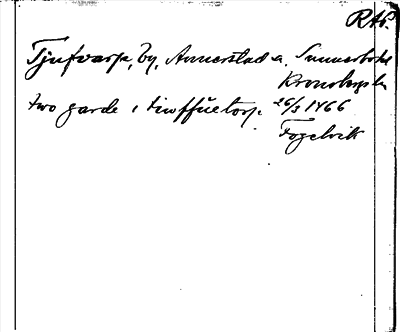 RAp.
Tjufvarp, by, Annerstad s. Sunnerbo hd
Kronobergs l.
two garde i tiwffuetorp. 26/3 1466
Fogelvik